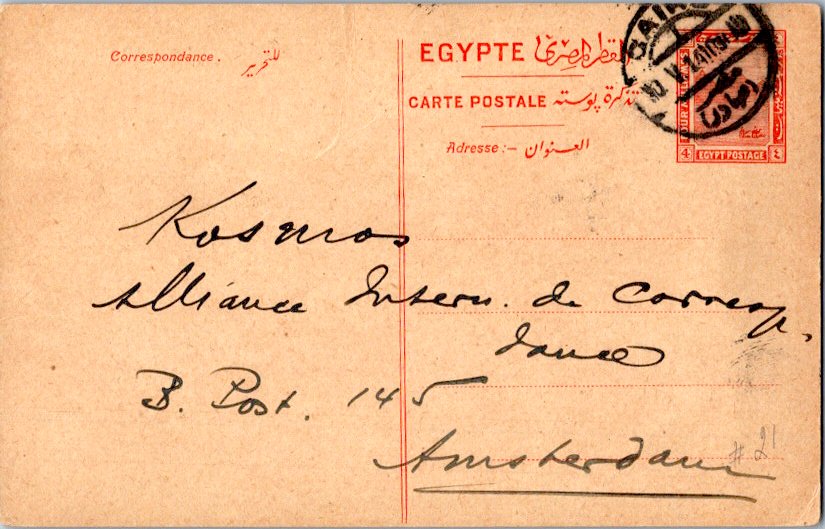 Correspondance . للتحرير
EGYPTE القطر المصرى
CARTE POSTALE تذكرة پوسته
Adresse :— العنوان
CAIRO
10 V 14 11
4 EGYPT POSTAGE ٤
Kosmos
Alliance Intern. de Corresp.
dance
B. Post. 145
Amsterdam
# 21